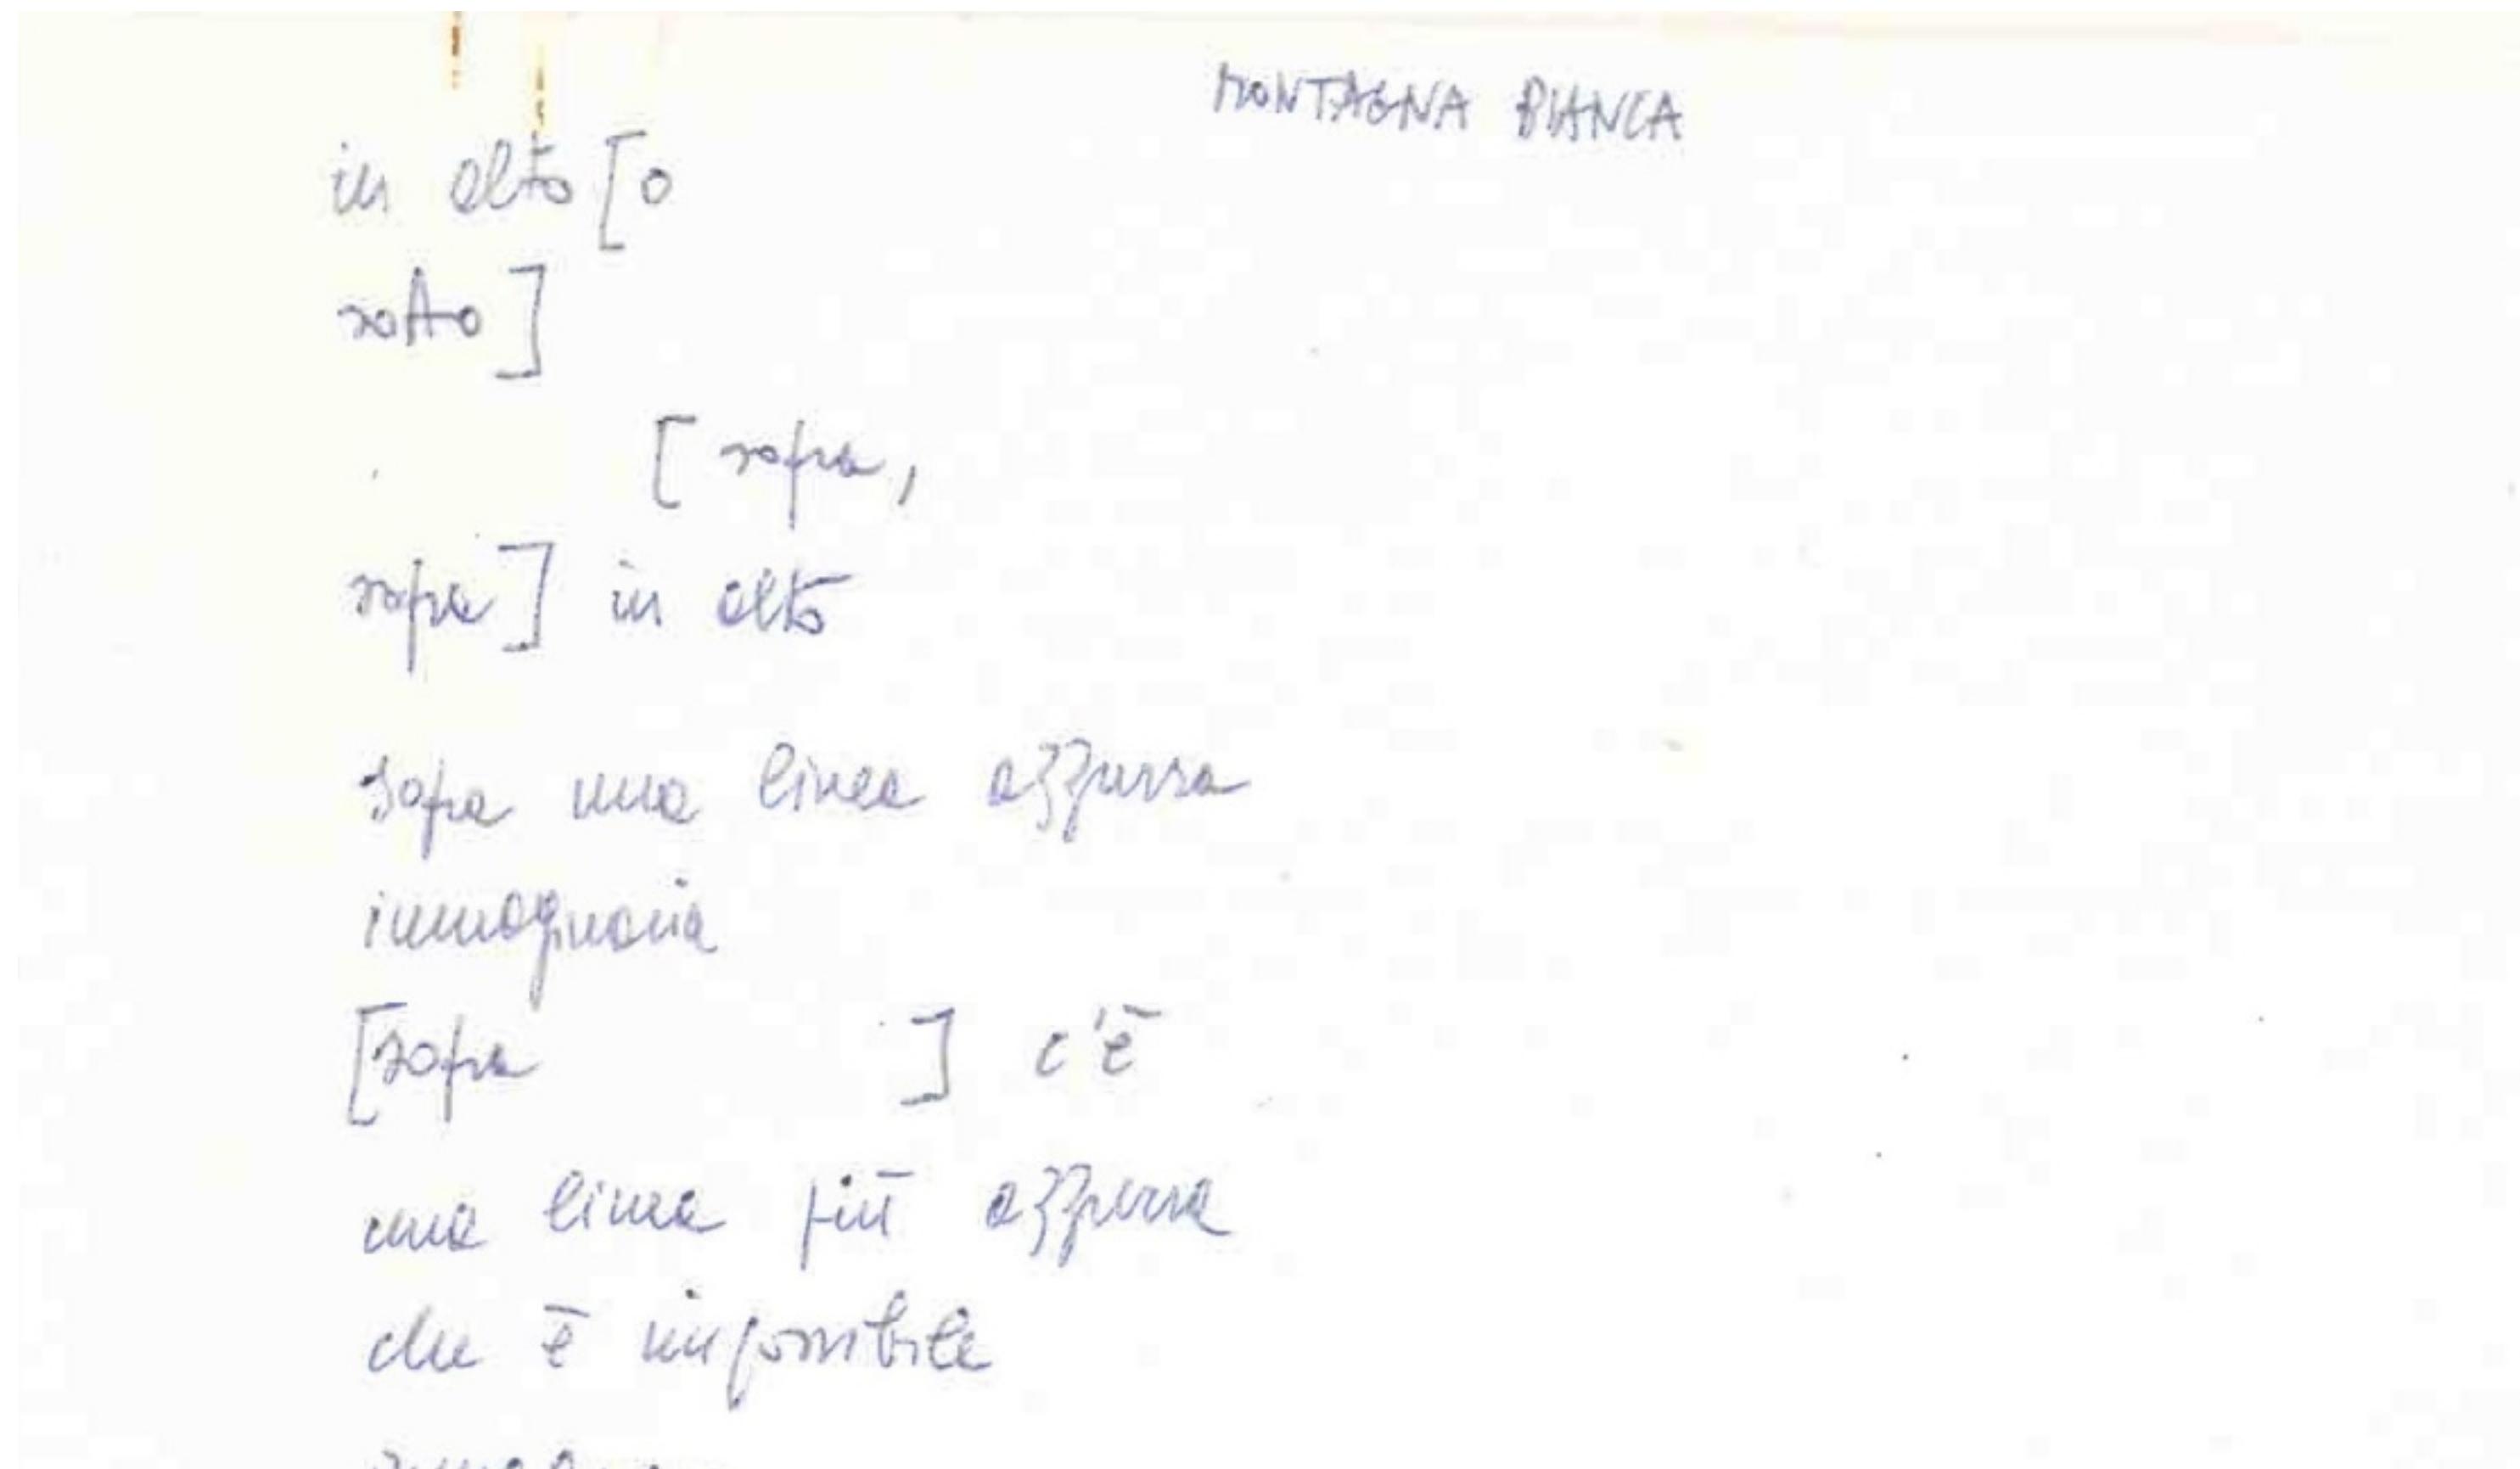 MONTAGNA BIANCA
in alto [o
sotto]
[sopra,
sopra] in alto
sopra una linea azzurra
immaginaria
[sopra ] c'è
una linea più azzurra
che è impossibile